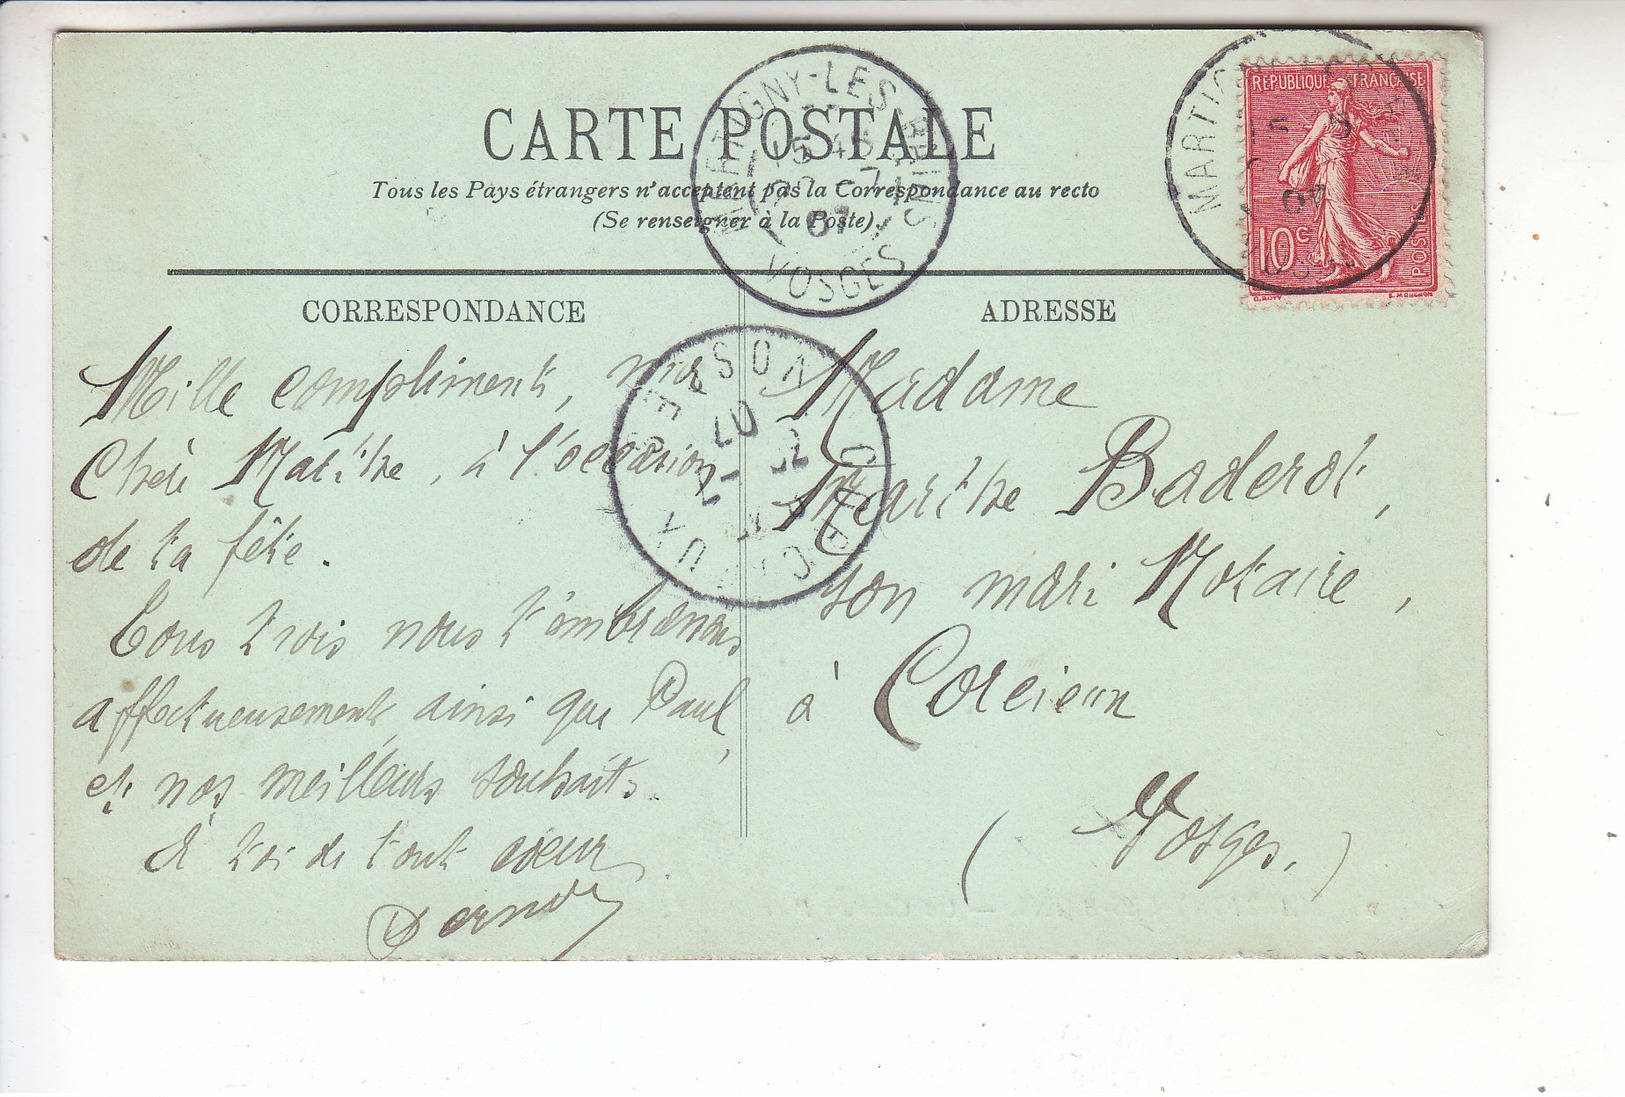 CARTE POSTALE
Tous les Pays étrangers n'acceptent pas la Correspondance au recto
(Se renseigner à la Poste).
MARTIGNY-LES-BAINS
15 45
07
VOSGES
MARTIG
07
REPUBLIQUE FRANÇAISE
10c
POSTES
O. ROTY
E. MOUCHON
CORRESPONDANCE
Mille compliments, ma
Chère Marthe, à l'occasion
de ta fête.
Tous trois nous t'embrassons
affectueusement, ainsi que Paul,
et nos meilleurs souhaits.
A toi de tout coeur
ADRESSE
Madame
Marthe Baderot,
son mari Notaire,
à Corcieux
(Vosges.)
CORCIEUX
07
VOSGES